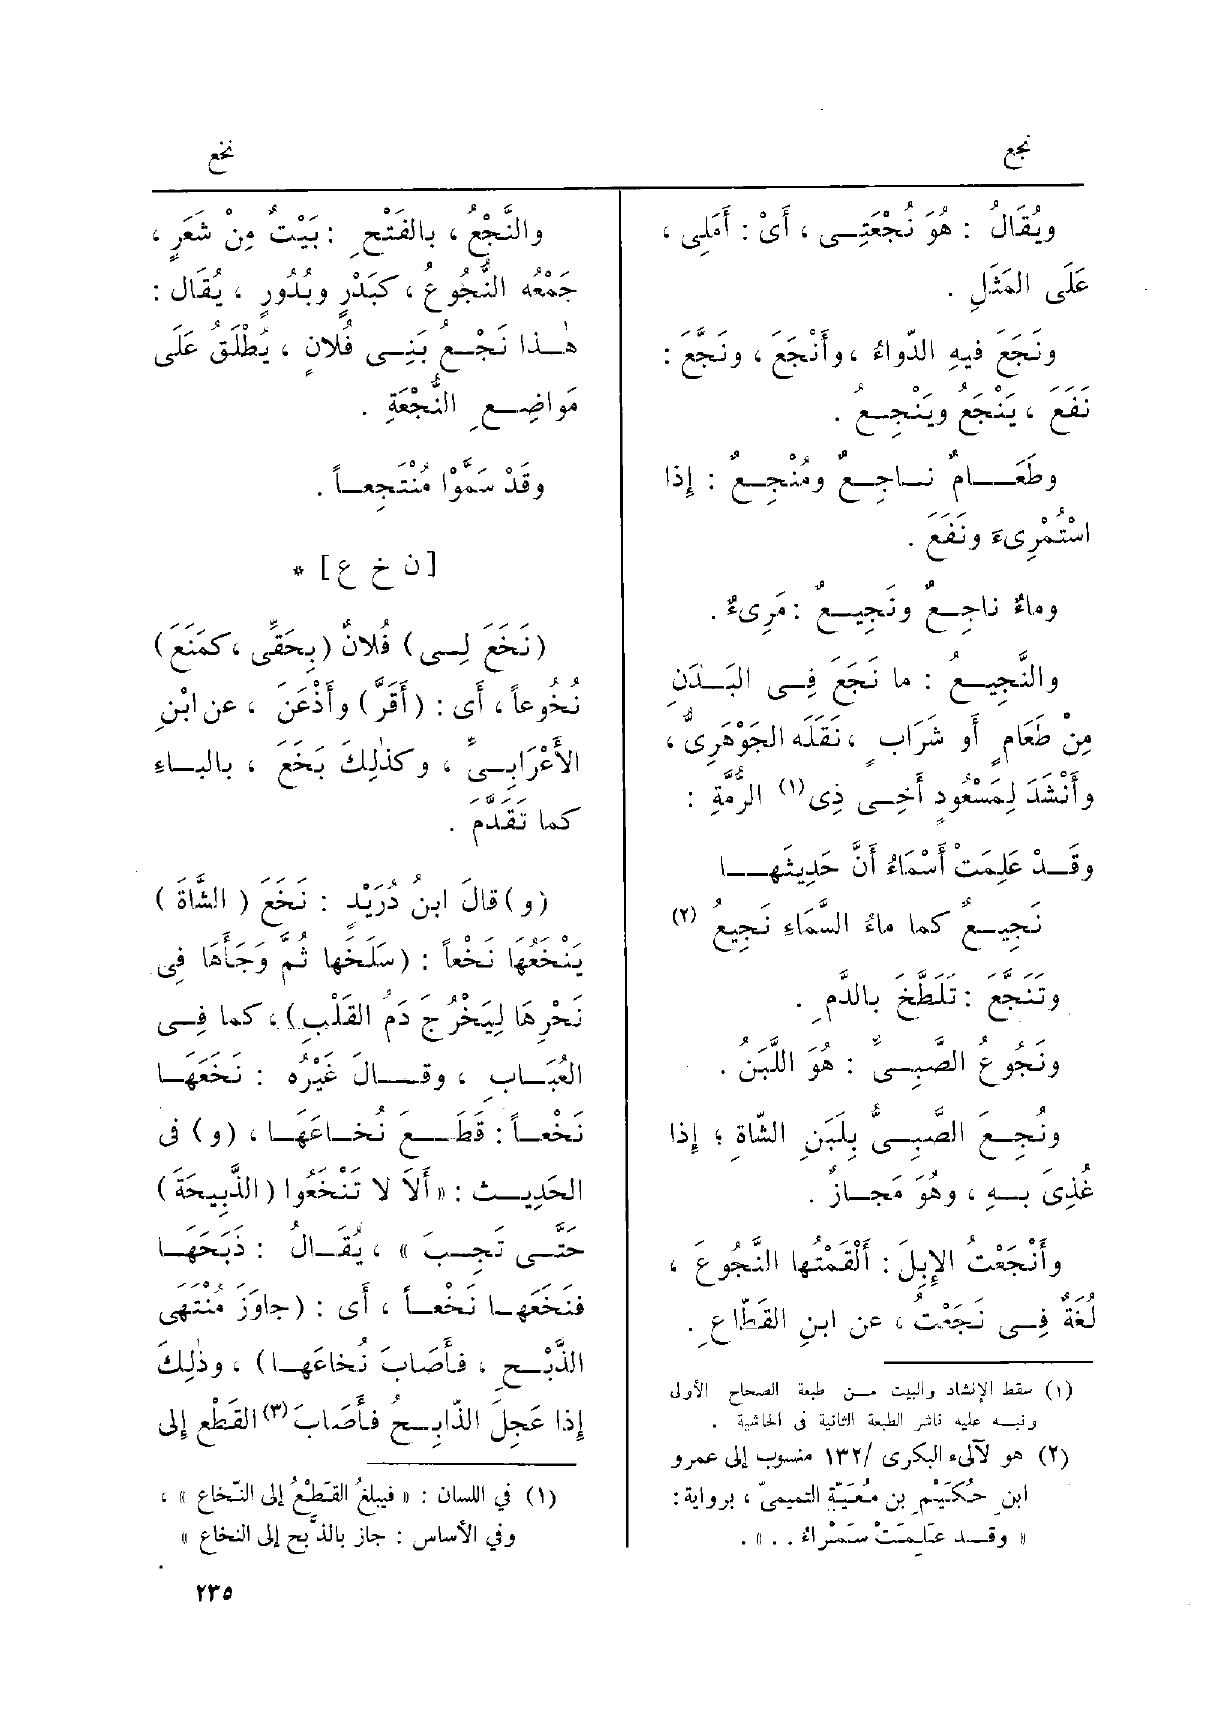 نجع
نخع
ويُقَالُ : هُوَ نُجْعَتِـى ، أَىْ : أَمَلِى ،
عَلَى المَثَلِ .
ونَجَعَ فيهِ الدّواءُ ، وأَنْجَعَ ، ونَجَّعَ :
نَفَعَ ، يَنْجَعُ ويَنْجِـعُ .
وطَعَـــامٌ نـاجِـعٌ ومُنْجِـعٌ : إِذا
اسْتُمْرِىءَ ونَفَعَ .
وماءٌ ناجِـعٌ ونَجِيـعٌ : مَرِىءٌ .
والنَّجِيـعُ : ما نَجَعَ فِـى البَـدَنِ
مِنْ طَعَامٍ أَو شَرَابٍ ، نَقَلَه الجَوْهَرِىُّ ،
وأَنْشَدَ لِمَسْعُودٍ أَخِـى ذِى (١) الرُّمَّةِ :
وقَـدْ عَلِمَتْ أَسْمَاءُ أَنَّ حَدِيثَهـــا
نَجِيـعٌ كما ماءُ السَّمَاءِ نَجِيعُ (٢)
وتَنَجَّعَ : تَلَطَّخَ بالدَّمِ .
ونَجُوعُ الصَّبِـىِّ : هُوَ اللَّبَنُ .
ونُجِـعَ الصَّبِـىُّ بِلَبَنِ الشّاةِ ؛ إِذا
غُذِىَ بـهِ ، وهُوَ مَجـازٌ .
وأَنْجَعْتُ الإِبِلَ : أَلْقَمْتُها النَّجُوعَ ،
لُغَةٌ فِـى نَجَعْتُ ، عن ابنِ القَطّاعِ .
(١) سقط الإنشاد والبيت مـن طبعة الصحاح الأولى
ونبـه عليه ناشر الطبعة الثانية فى الحاشية .
(٢) هو لآلىء البكرى /١٣٢ منسوب إلى عمرو
ابن حُكَيْمٍ بن مُعَيَّةَ التميمىّ ، برواية :
« وقـد عَلِمَتْ سَمْراءُ . . » .
والنَّجْعُ ، بالفَتْحِ : بَيْتٌ مِنْ شَعَرٍ ،
جَمْعُه النُّجُوعُ ، كبَدْرٍ وبُدُورٍ ، يُقَال :
هٰـذا نَجْـعُ بَنِـى فُلانٍ ، يُطْلَقُ عَلَى
مَواضِـعِ النُّجْعَةِ .
وقَدْ سَمَّوْا مُنْتَجِعـاً .
[ن خ ع] *
(نَخَعَ لِـى) فُلانٌ (بِحَقِّى ، كمَنَعَ)
نُخُوعاً ، أَى : (أَقَرَّ) وأَذْعَنَ ، عن ابْنِ
الأَعْرَابِـىِّ ، وكذٰلِكَ بَخَعَ ، بالبـاءِ
كما تَقَدَّمَ .
(و) قالَ ابنُ دُرَيْدٍ : نَخَعَ ( الشَّاةَ )
يَنْخَعُهَا نَخْعاً : (سَلَخَها ثُمَّ وَجَأَهَا فِى
نَحْرِهَا لِيَخْرُجَ دَمُ القَلْبِ) ، كما فِـى
العُبَـابِ ، وقـالَ غَيْرُه : نَخَعَهَـا
نَخْعـاً : قَطَـعَ نُخـاعَهَـا ، (و) فى
الحَدِيـث : « أَلاَ لا تَنْخَعُوا (الذَّبِيحَةَ)
حَتَّـى تَجِـبَ » ، يُقَـالُ : ذَبَحَهَـا
فنَخَعَهـا نَخْعـاً ، أَى : (جاوَزَ مُنْتَهَى
الذَّبْـحِ ، فأَصَابَ نُخاعَهـا) ، وذٰلِكَ
إِذا عَجِلَ الذّابِـحُ فأَصَابَ (٣) القَطْع إِلى
(١) في اللسان : « فيبلغُ القَطْعُ إلى النّخاع » ،
وفي الأساس : جاز بالذَّبح إلى النخاع »
٢٣٥